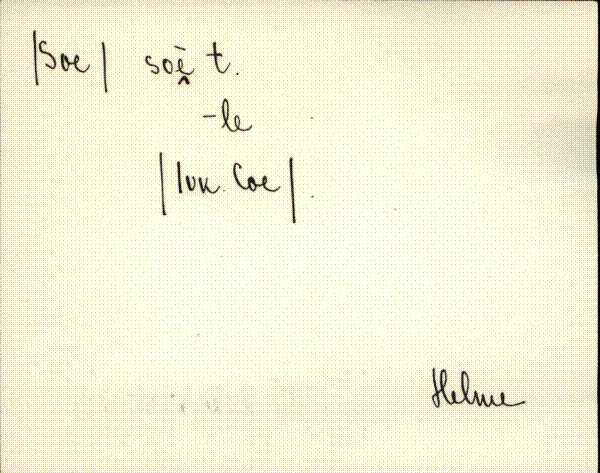 |Soe| soè̬ t.
-le
|Iva. Coe|.
Helme